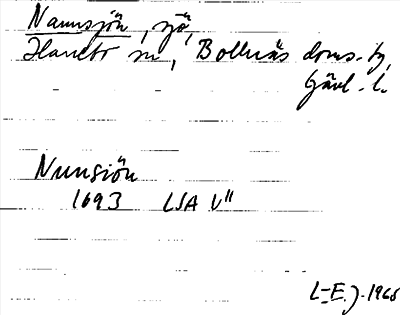 Nannsjön, sjö,
Hanebo sn, Bollnäs doms.-g,
Gävl. l.
Nunsiön
1693 LSA V"
L-E.J. 1965